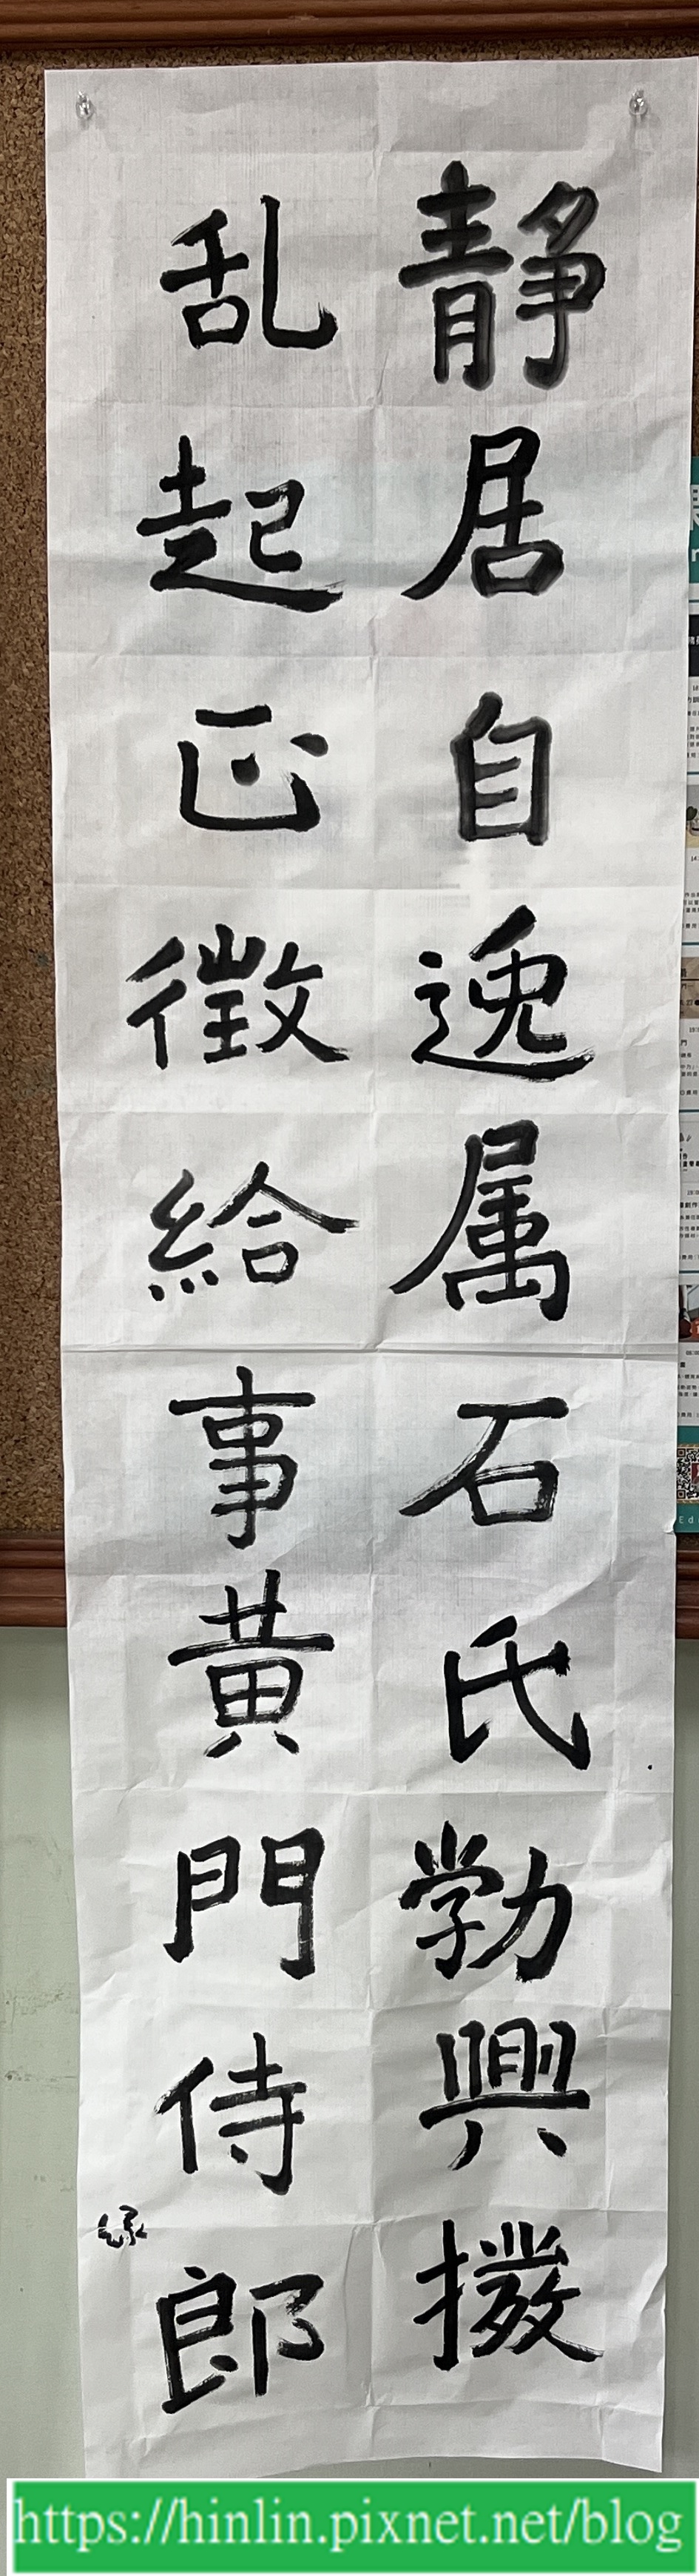 静居自逸属石氏勃興撥
乱起正徵給事黄門侍郎
https://hinlin.pixnet.net/blog